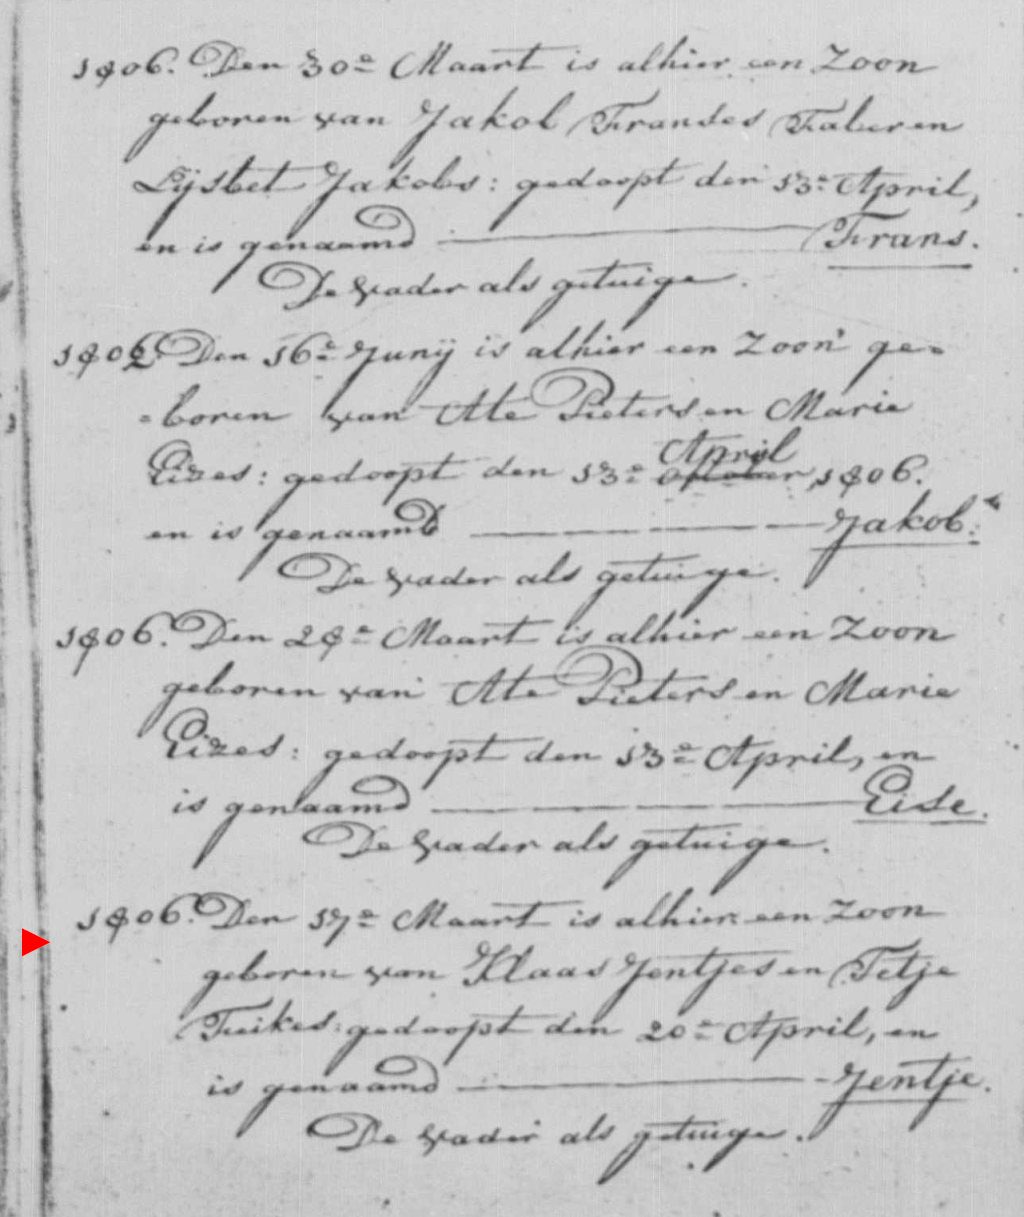 1806. Den 30e Maart is alhier een Zoon
geboren van Jakob Franses Faber en
Lijsbet Jakobs: gedoopt den 13e April,
en is genaamd ———— Frans.
De Vader als getuige.
1806. Den 16e Junij is alhier een Zoon ge=
=boren van Ate Pieters en Marie
Eizes: gedoopt den 13e April 1806.
en is genaamd ———— Jakob.
De Vader als getuige.
1806. Den 28e Maart is alhier een Zoon
geboren van Ate Pieters en Marie
Eizes: gedoopt den 13e April, en
is genaamd ———— Eise.
De Vader als getuige.
1806. Den 17e Maart is alhier een Zoon
geboren van Klaas Jentjes en Tetje
Feikes: gedoopt den 20e April, en
is genaamd ———— Jentje.
De Vader als getuige.